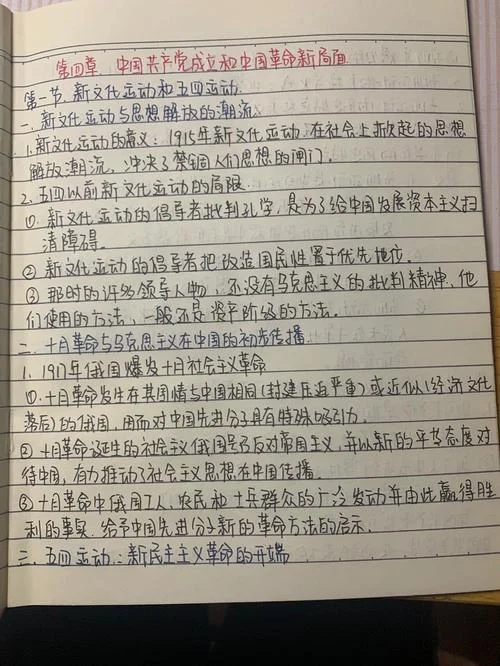 第四章 中国共产党成立和中国革命新局面
第一节 新文化运动和五四运动
一、新文化运动与思想解放的潮流
1.新文化运动的意义：1915年新文化运动在社会上掀起的思想
解放潮流，冲决了禁锢人们思想的闸门。
2.五四以前新文化运动的局限
①.新文化运动的倡导者批判孔学，是为了给中国发展资本主义扫
清障碍。
②新文化运动的倡导者把改造国民性置于优先地位。
③那时的许多领导人物，还没有马克思主义的批判精神，他
们使用的方法，一般还是资产阶级的方法。
二、十月革命与马克思主义在中国的初步传播
1.1917年俄国爆发十月社会主义革命
①.十月革命发生在其国情与中国相同(封建压迫严重)或近似(经济文化
落后)的俄国，因而对中国先进分子具有特殊吸引力。
②十月革命诞生的社会主义俄国号召反对帝国主义，并以新的平等态度对
待中国，有力推动了社会主义思想在中国传播。
③十月革命中俄国工人、农民和士兵群众的广泛发动并由此赢得胜
利的事实，给予中国先进分子新的革命方法的启示。
三、五四运动：新民主主义革命的开端